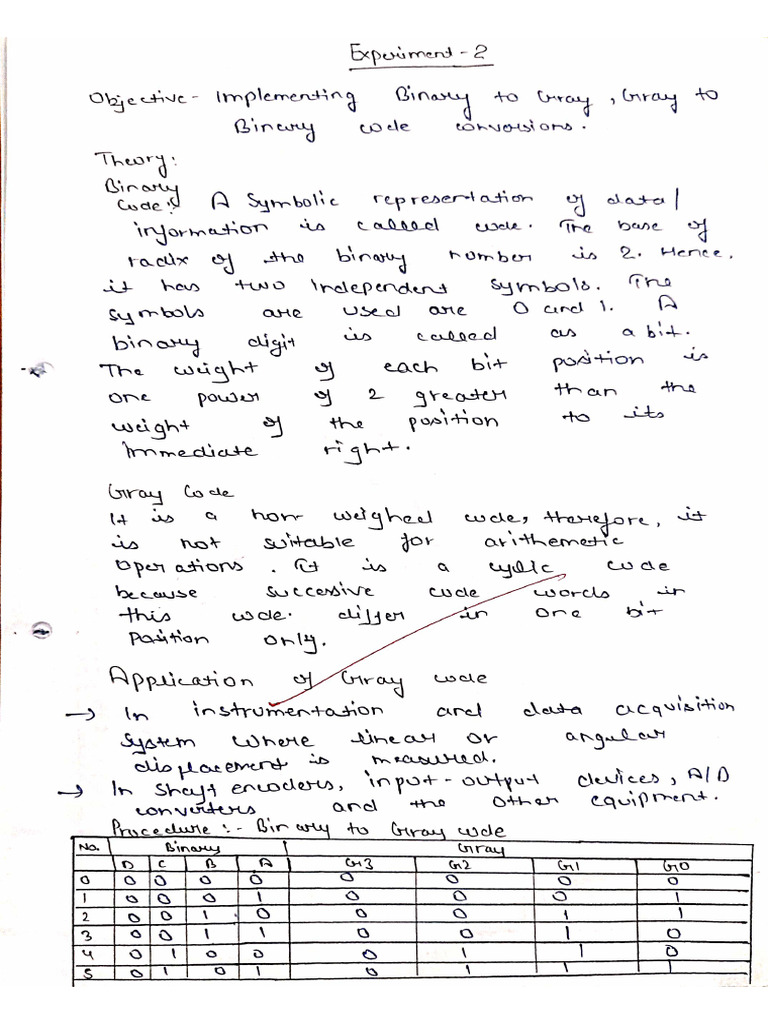 Experiment - 2
Objective - Implementing Binary to Gray, Gray to
Binary code conversions.
Theory:
Binary
Code:
A Symbolic representation of data/
information is called code. The base of
radix of the binary number is 2. Hence,
it has two Independent symbols. The
symbols are used are 0 and 1. A
binary digit is called as a bit.
The weight of each bit position is
one power of 2 greater than the
weight of the position to its
Immediate right.
Gray Code
It is a non weighed code, therefore, it
is not suitable for arithemetic
operations. It is a cyclic code
because successive code words in
this code differ in one bit
Position only.
Application of Gray code
→ In instrumentation and data acquisition
system where linear or angular
displacement is measured.
→ In Shaft encoders, input-output devices, A/D
converters and the other equipment.
Procedure :- Binary to Gray code
No. Binary Gray
D C B A G3 G2 G1 G0
0 0 0 0 0 0 0 0 0
1 0 0 0 1 0 0 0 1
2 0 0 1 0 0 0 1 1
3 0 0 1 1 0 0 1 0
4 0 1 0 0 0 1 1 0
5 0 1 0 1 0 1 1 1